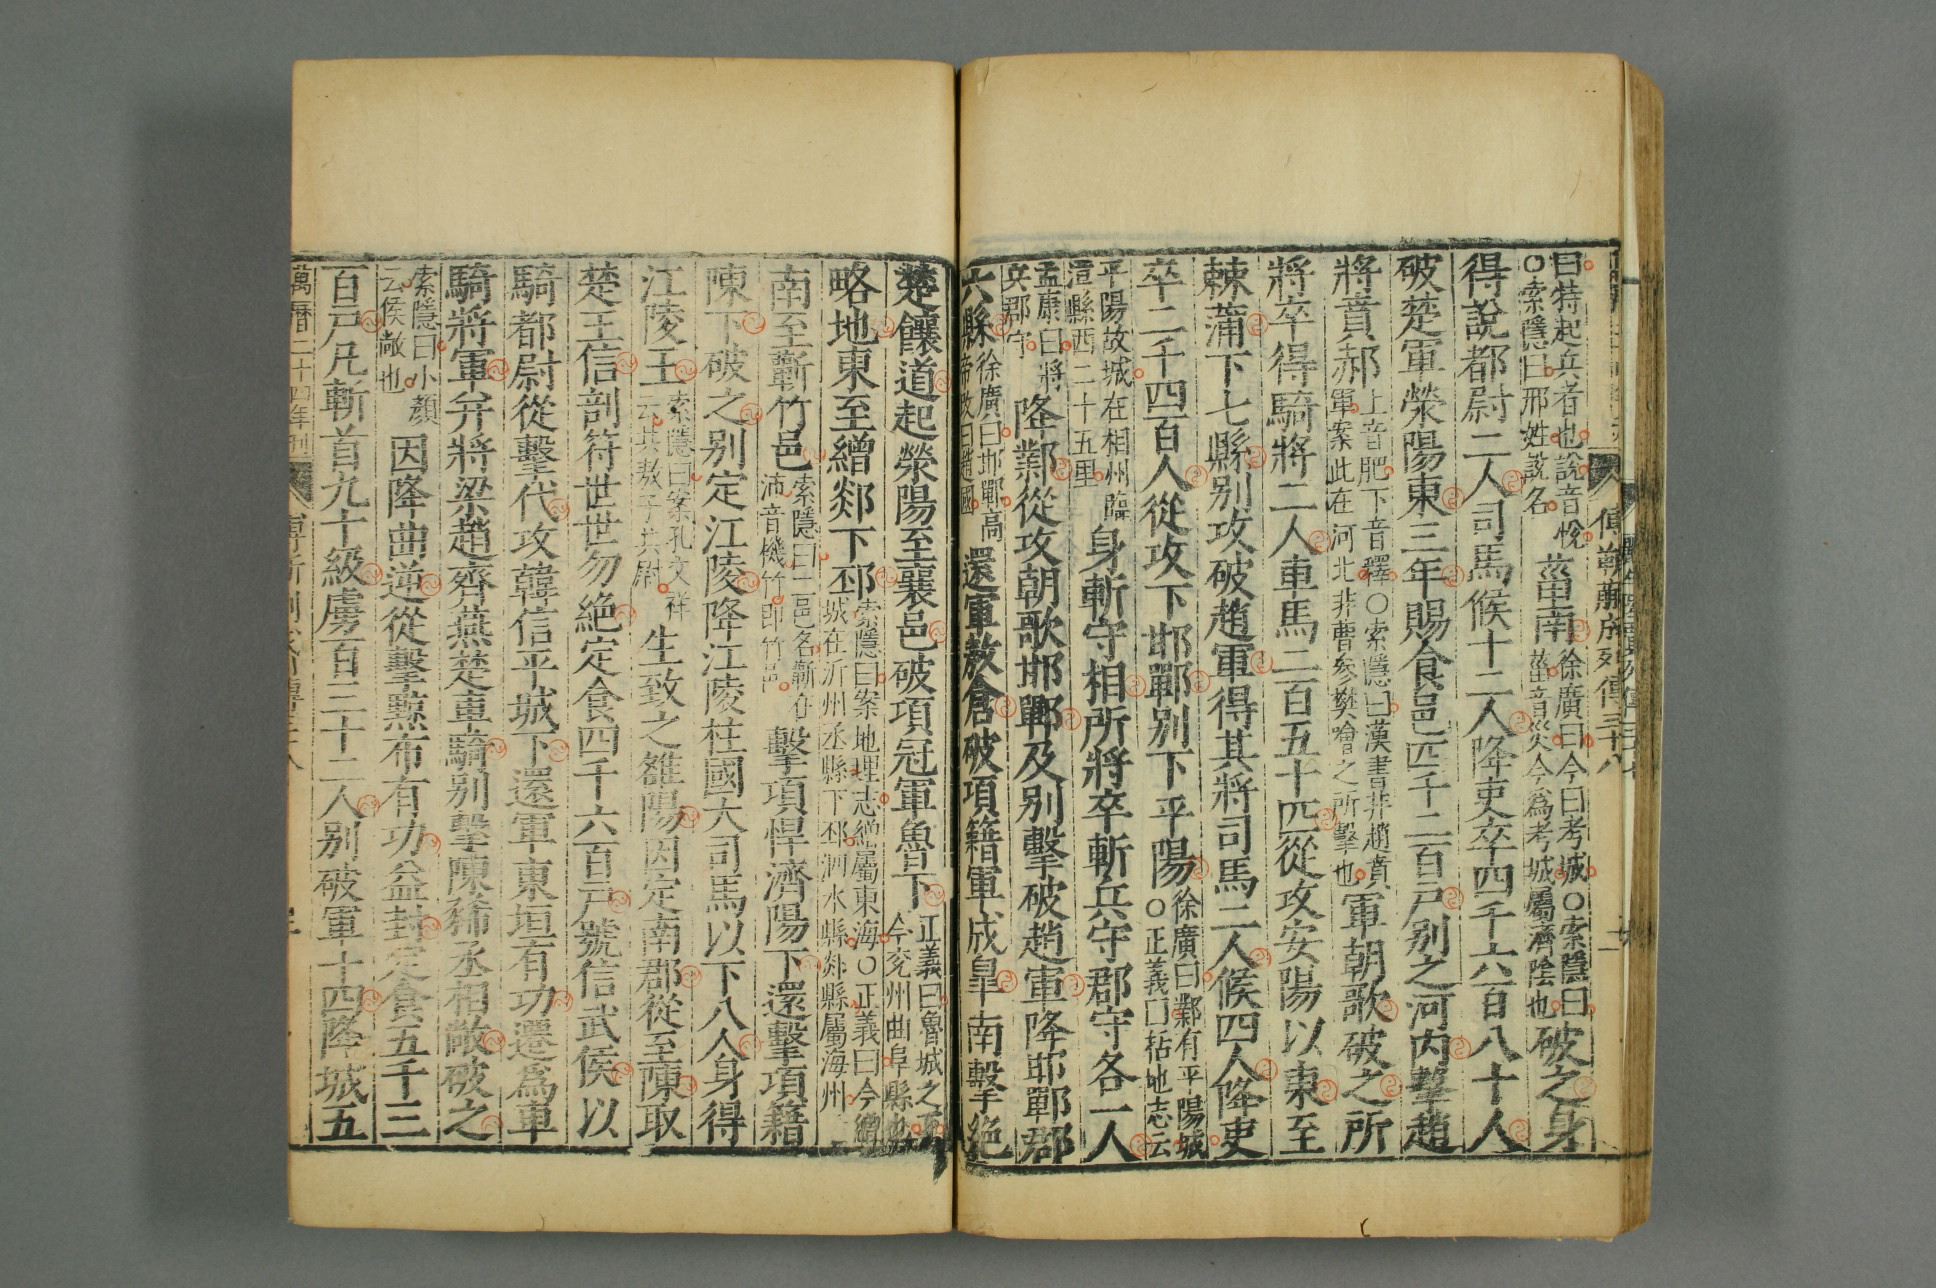 曰特起兵者也說音悅
○索隱曰邢姓說名
菑南
徐廣曰今曰考城○索隱曰
菑音災今爲考城屬濟陰也
破之身
得說都尉二人司馬候十二人降吏卒四千六百八十人
破楚軍滎陽東三年賜食邑四千二百戶别之河内擊趙
將賁郝
上音肥下音釋○索隱曰漢書並趙賁
軍案此在河北非曹參樊噲之所擊也
軍朝歌破之所
將卒得騎將二人車馬二百五十匹從攻安陽以東至
棘蒲下七縣别攻破趙軍得其將司馬二人候四人降吏
卒二千四百人從攻下邯鄲别下平陽
徐廣曰鄴有平陽城
○正義曰括地志云
平陽故城在相州臨
漳縣西二十五里
身斬守相所將卒斬兵守郡守各一人
孟康曰將
兵郡守
降鄴從攻朝歌邯鄲及别擊破趙軍降邯鄲郡
六縣
徐廣曰邯鄲高
帝改曰趙國
還軍敖倉破項籍軍成臯南擊絶
楚饟道起滎陽至襄邑破項冠軍魯下
正義曰魯城之下
今兖州曲阜縣也
略地東至繒郯下邳
索隱曰案地理志繒屬東海○正義曰今繒
城在沂州丞縣下邳泗水縣郯縣屬海州
南至蘄竹邑
索隱曰二邑名蘄在
沛音機竹即竹邑
擊項悍濟陽下還擊項籍
陳下破之别定江陵降江陵柱國大司馬以下八人身得
江陵王
索隱曰案孔文祥
云共敖子共尉
生致之雒陽因定南郡從至陳取
楚王信剖符世世勿絶定食四千六百戶號信武侯以
騎都尉從擊代攻韓信平城下還軍東垣有功遷爲車
騎將軍并將梁趙齊燕楚車騎别擊陳豨丞相敞破之
索隱曰小顏
云侯敞也
因降曲逆從擊黥布有功益封定食五千三
百戶凡斬首九十級虜百三十二人别破軍十四降城五
萬曆二十四年刊